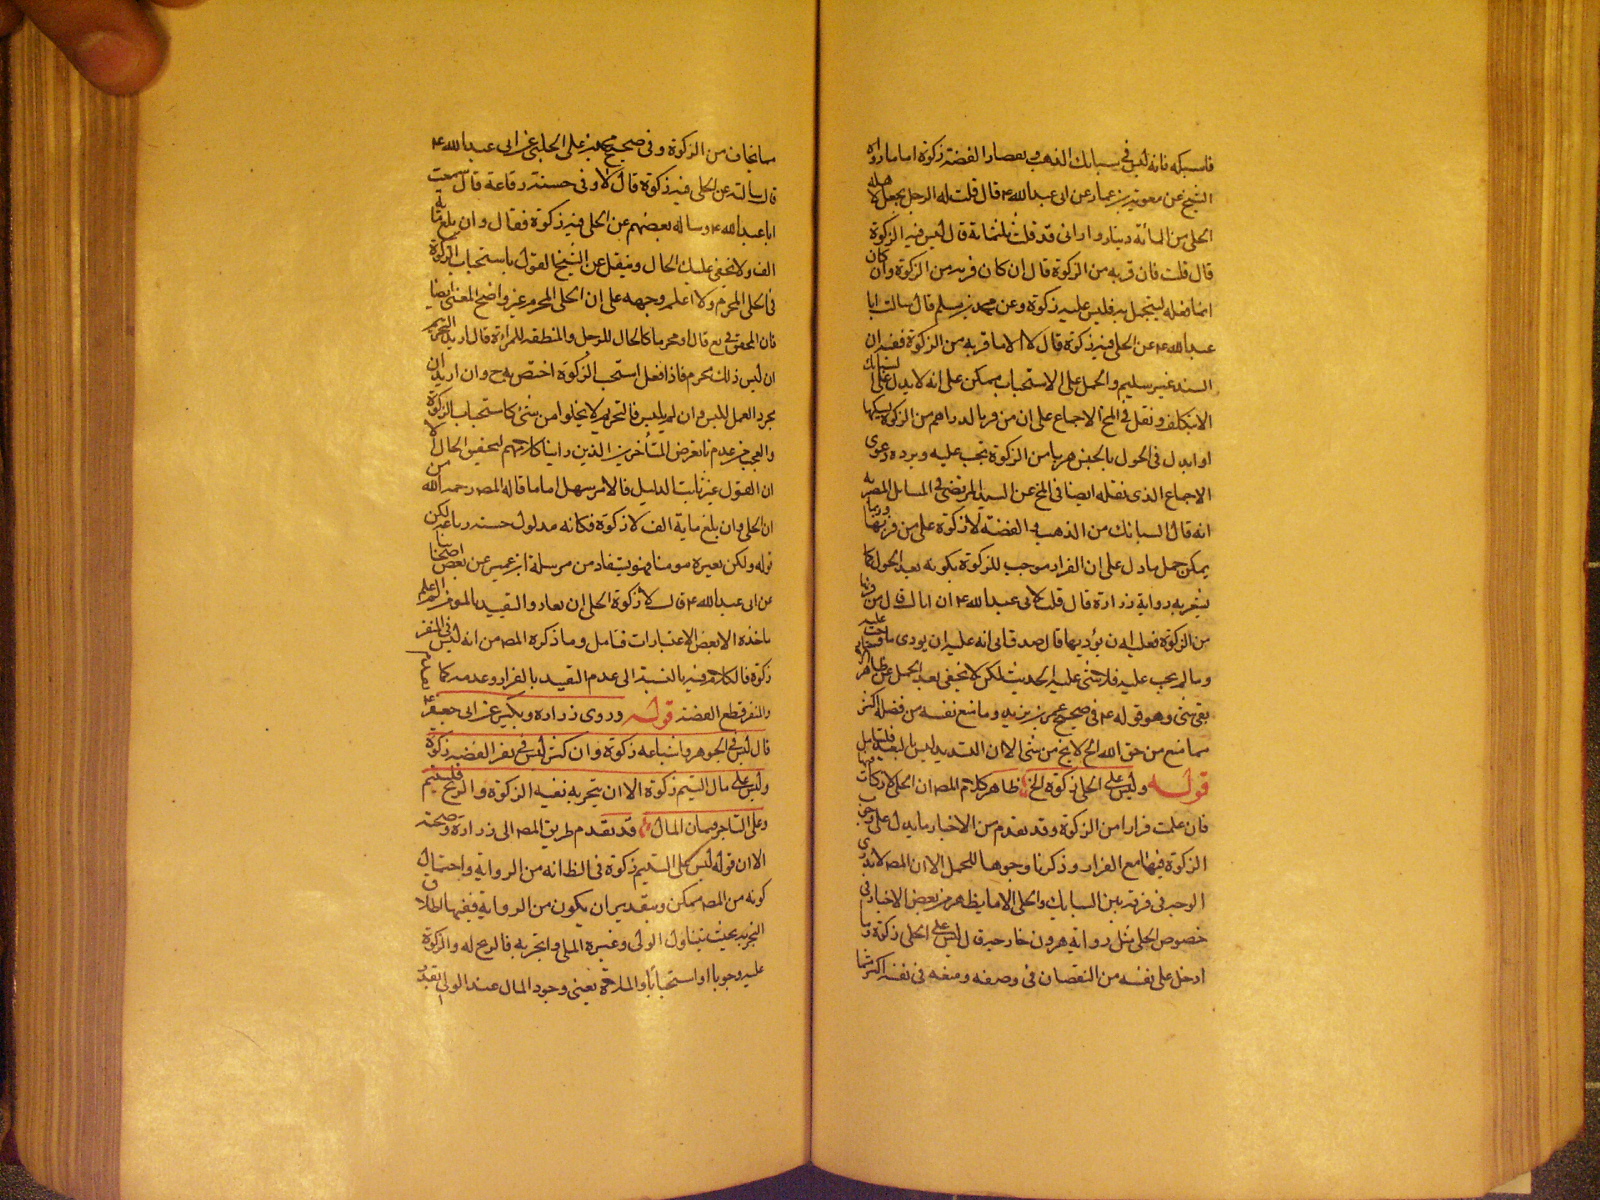 فلسبكه فانه ليس في سبائك الذهب ونقار الفضة زكوة اما ما رواه
الشيخ عن معوية بن عمار عن ابى عبد الله ع قال قلت له الرجل يجعل لاهله
الحلي من المائة دينار واراني قد قلت ثلثماية قال ليس فيه الزكوة
قال قلت فان فر به من الزكوة قال ان كان فر به من الزكوة وان كان
انما فعله ليتجمل به فليس عليه زكوة وعن محمد بن مسلم قال سالت ابا
عبد الله ع عن الحلي فيه زكوة قال لا الا ما فر به من الزكوة ففيه ان
السند غير سليم والحمل على الاستحباب ممكن على انه لا يدل على السبائك
الا بتكلف ونقل في الخ الاجماع على ان من فر بالدراهم من الزكوة بسبكها
او ابدل في الحول بالجنس هربا من الزكوة تجب عليه ويرده دعوى
الاجماع الذي نقله ايضا في الخ عن السيد المرتضى في المسائل المصرية
انه قال السبائك من الذهب والفضة لا زكوة على من فر بها وربما
يمكن حمل ما دل على ان الفرار موجب للزكوة بكونه بعد الحول كما
يشعر به رواية زرارة قال قلت لابى عبد الله ع ان اباك قال من فر بها
من الزكوة فعليه ان يؤديها قال صدق ابى انه عليه ان يودى ما وجب عليه
وما لم يجب عليه فلا شئ عليه الحديث لكن لا يخفى بعد الحمل عن ظاهر
بقى شئ وهو قوله ع في صحيح عمر بن يزيد وما منع نفسه من فضله اكثر
مما منع من حق الله الخ لا يخ من شئ الا ان السند ليس بالبعيد فليتامل
قوله وليس على الحلي زكوة الخ ظاهر كلام المص ان الحلي لا زكوة فيها
فان علمت فرارا من الزكوة وقد تقدم من الاخبار ما يدل على وجوب
الزكوة فيها مع الفرار وذكرنا وجوها للحمل الا ان المص لا ندرى
الوجه في فرقه بين السبايك والحلي الا ما يظهر من بعض الاخبار في
خصوص الحلي مثل رواية هرون خارجة قال ليس على الحلي زكوة وما
ادخل على نفسه من النقصان في وصفه ومنعه في نفسه اكثر مما
مما يخاف من الزكوة وفي صحيح محمد بن على الحلبي عن ابى عبد الله ع
قال سالته عن الحلي فيه زكوة قال لا وفي حسنة رفاعة قال سمعت
ابا عبد الله ع وساله بعضهم عن الحلي فيه زكوة فقال وان بلغ مائة
الف ولا يخفى عليك الحال وينقل عن الشيخ القول باستحباب الزكوة
في الحلي المحرم ولا اعلم وجهه على ان الحلي المحرم غير واضح المعنى ايضا
فان المحقق في يع قال او محرما كالحال للرجل والمنطقه للمراة قال اريد التحريم
ان لبس ذلك محرم فاذا فعل استحب الزكوة اختص به ح وان اريد ان
مجرد العمل للبس وان لم يلبس فالتحريم لا يخلوا من شئ كاستحباب الزكوة
والعجب من عدم تعرض المتأخرين الذين راينا كلامهم لتحقيق الحال الا
ان القول غير ثابت الدليل فالامر سهل اما ما قاله المص رحمه الله من
ان الحلي وان بلغ ماية الف لا زكوة فكانه مدلول حسنة رفاعة لكن
قوله ولكن يعيره مومنا فهو يستفاد من مرسلة ابن عمير عن بعض اصحابنا
عن ابى عبد الله ع قال زكوة الحلي ان يعار والتقييد بالمومن لم اعلم
ماخذه الا بعض الاعتبارات فتامل وما ذكره المص من انه ليس في النقر
زكوة فالكلام فيه بالنسبة الى عدم التقييد بالفرار وعدمه كما تقدم
والنقر قطع الفضة قوله وروى زرارة وبكير عن ابى جعفر ع
قال ليس في الجوهر واشباهه زكوة وان كثر ليس في نقر الفضة زكوة
وليس على مال اليتيم زكوة الا ان يتجر به ففيه الزكوة والربح لليتيم
وعلى التاجر ضمان المال قد تقدم طريق المص الى زرارة وصحته
الا ان قوله ليس على اليتيم زكوة في الظ انه من الرواية واحتمال
كونه من المص ممكن وبتقدير ان يكون من الرواية ففيها اطلاق
التجر به بحيث يتناول الولى وغيره الملى واتجر به فالربح له والزكوة
عليه وجوبا او استحبابا والملاءة يعنى وجود المال عند الولى بقدر